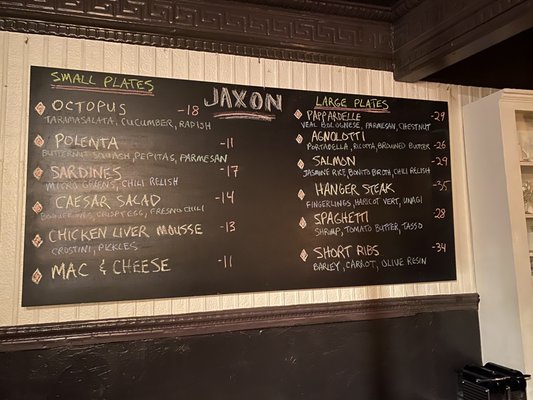 JAXON
SMALL PLATES
OCTOPUS -18
TARAMASALATA, CUCUMBER, RADISH
POLENTA -11
BUTTERNUT SQUASH, PEPITAS, PARMESAN
SARDINES -17
MICRO GREENS, CHILI RELISH
CAESAR SALAD -14
BOQUERONES, CRISPY EGG, FRESNO CHILI
CHICKEN LIVER MOUSSE -13
CROSTINI, PICKLES
MAC & CHEESE -11
LARGE PLATES
PAPPARDELLE -29
VEAL BOLOGNESE, PARMESAN, CHESTNUT
AGNOLOTTI
PORTABELLA, RICOTTA, BROWNED BUTTER -26
SALMON -29
JASMINE RICE, BONITO BROTH, CHILI RELISH
HANGER STEAK -35
FINGERLINGS, HARICOT VERT, UNAGI
SPAGHETTI 28
SHRIMP, TOMATO BUTTER, TASSO
SHORT RIBS -34
BARLEY, CARROT, OLIVE RESIN